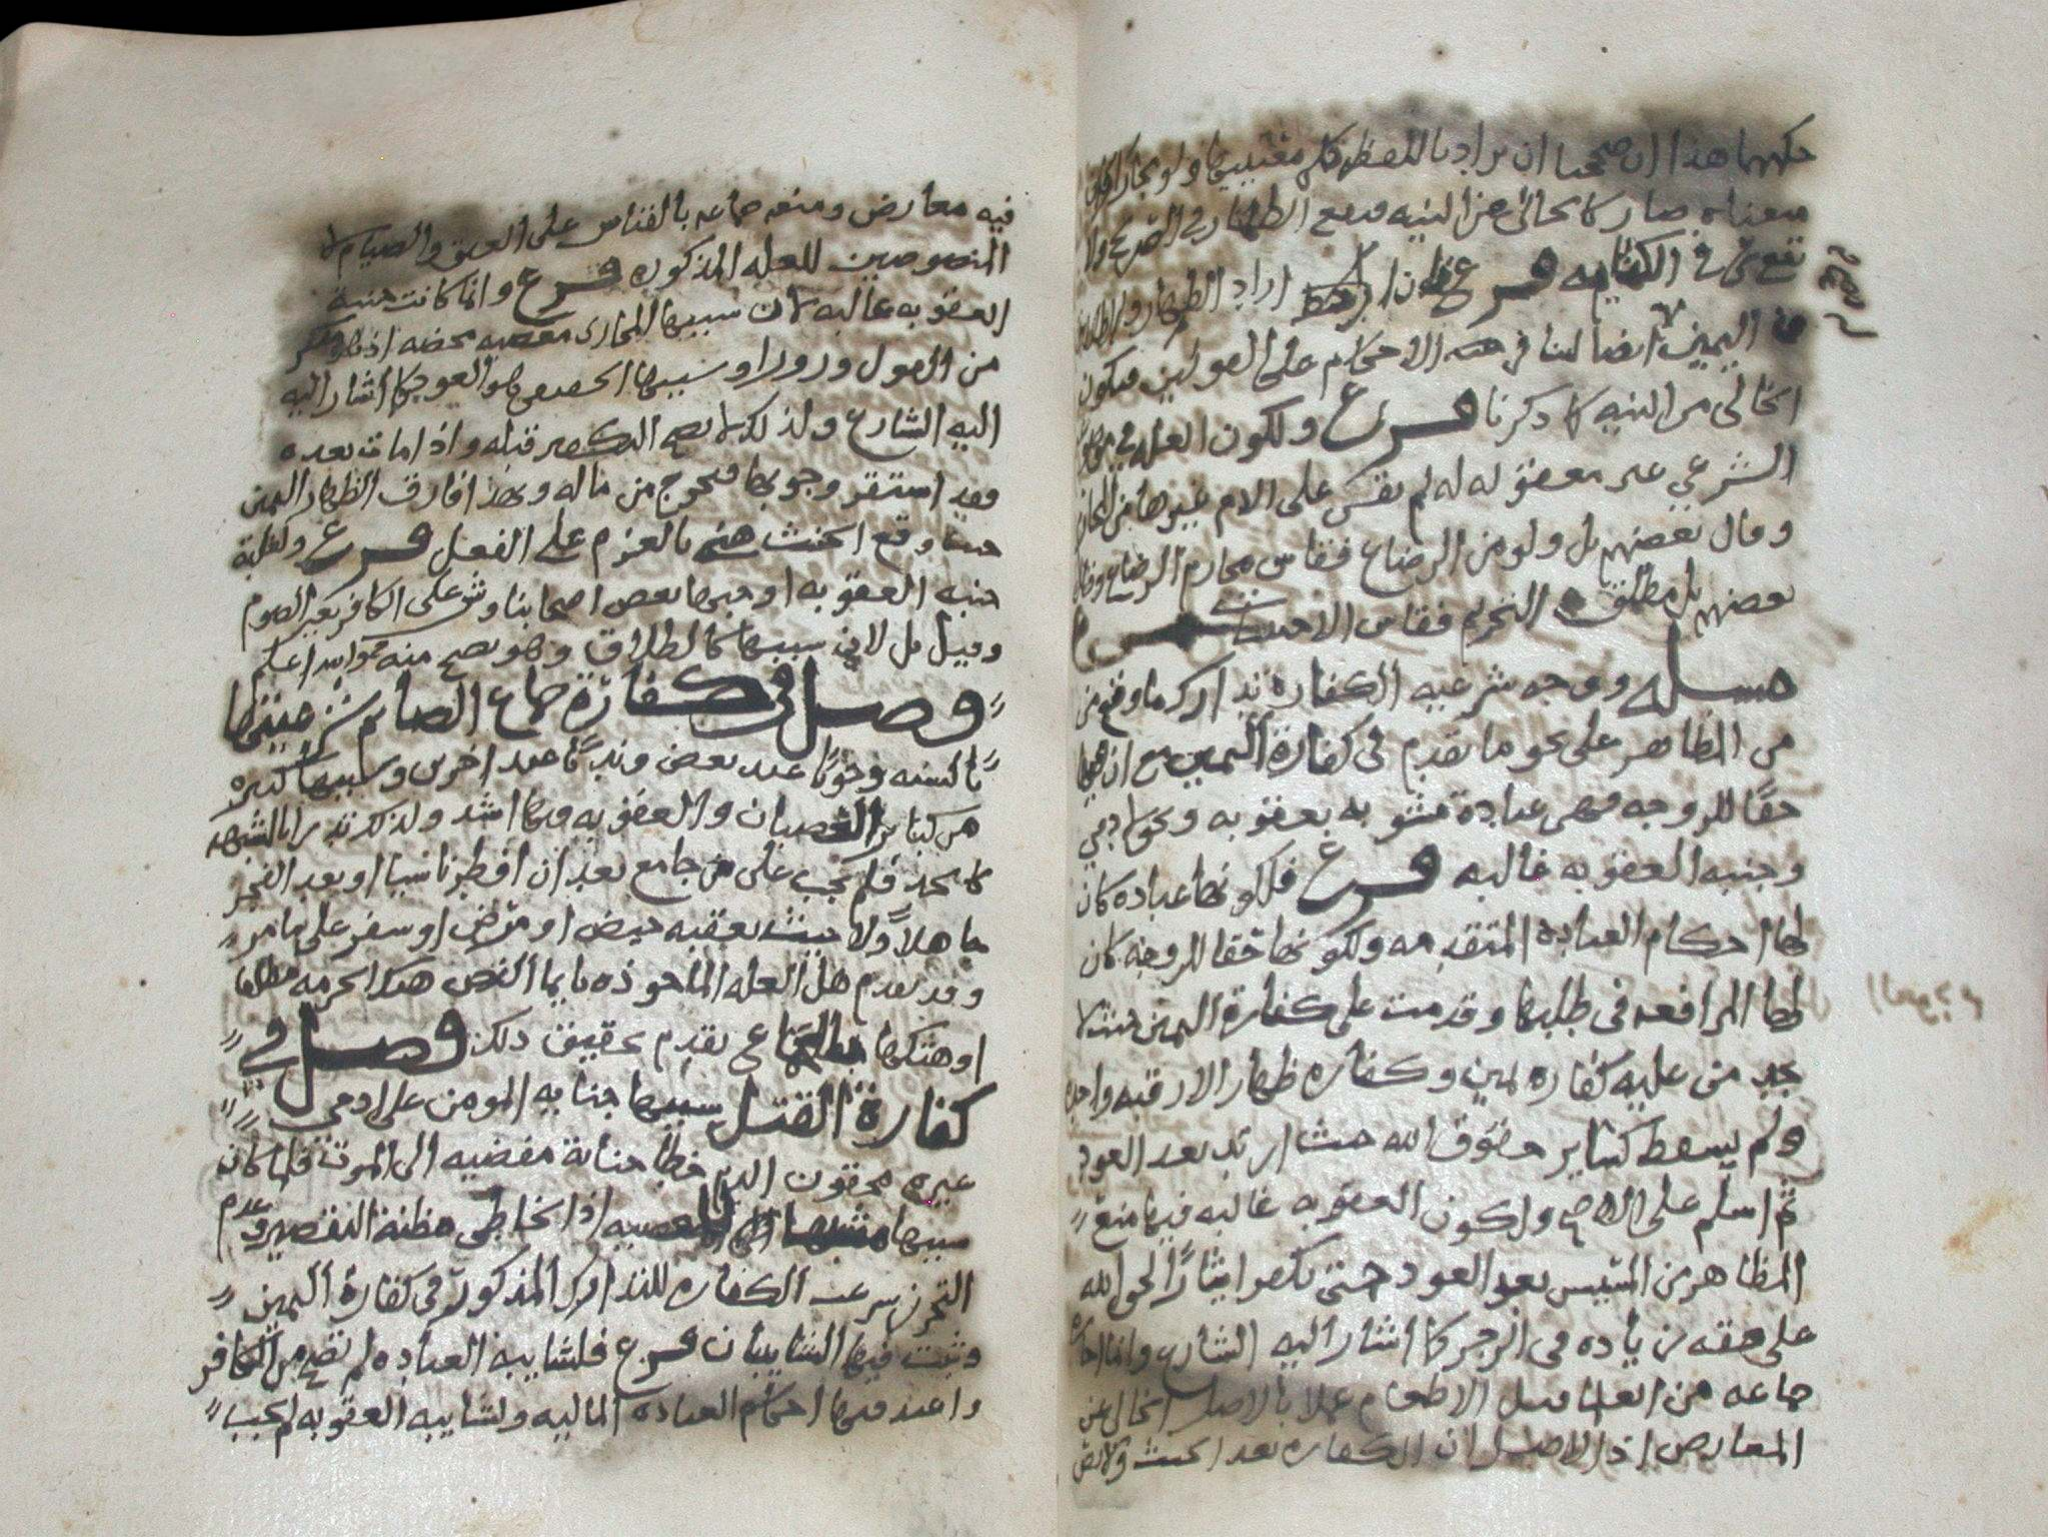 حكمهما هذا ان صححنا ان يراد باللفظ كلي معنييها ولو مجازا
معناه صار كالخالي عن النيه فيقع الظهار في الصريح ولا
يقع شي في الكنايه فرع فان اراد الظهار والطلاق
اليمين ايضا لنا في هذه الاحكام على القولين فيكون
الخالي من النيه كما ذكرنا فرع ولكون العله في
الشرعي غير معقوله له لم يقس على الام غيرها من المحارم
وقال بعضهم بل ولو من الرضاع فقاس محارم الرضاع وقال
بعضهم بل مطلق التحريم فقاس الاجنبيات فرع
مسله ووجه شرعيه الكفاره تدارك ما وقع من
من المظاهر على نحو ما تقدم في كفارة اليمين مع ان فيها
حقا للزوجه فهي عبادة مشوبه بعقوبه وحق ادمي
وجنبه العقوبه غالبه فرع فلكونها عباده كان
لها احكام العباده المتقدمه ولكونها حقا للزوجه كان
لها المرافعه في طلبها وقدمت على كفارة اليمين حيث لا
يجد من عليه كفاره يمين وكفاره ظهار الا رقبه واحده
ولم يسقط كساير حقوق الله حيث ارتد بعد العود
ثم اسلم على الاصح ولكون العقوبه غالبه فيها منع
المظاهر من المسيس بعد العود حتى يكفر ايثارا لحق الله
على حقه زياده في الزجر كما اشار اليه الشارع وانما اجازه
جماعه من العلما قبل الاطعام عملا بالاصل الخالي عن
المعارض اذ الاصل ان الكفاره بعد الحنث
فيه معارض ومنعه جماعه بالقياس على العتق والصيام
المنصوصين للعله المذكوره فرع وانما كانت جنبة
العقوبه غالبه لان سببها المجازي معصيه محضه اذ هو منكر
من القول وزورا وسببها الحقيقي هو العود كما اشار اليه
اليه الشارع ولذلك لا يصح التكفير قبله واذا مات بعده
وقد استقر وجوبها فتخرج من ماله وبهذا فارق الظهار اليمين
حيث وقع الحنث بالعزم على الفعل فرع ولغلبة
جنبه العقوبه اوجبها بعض اصحابنا وش على الكافر بغير الصوم
وقيل بل لان سببها كالطلاق وهو يصح منه والله اعلم
وصل في كفارة جماع الصائم شرعيتها
بالسنه وجوبا عند بعض وندبا عند اخرين وسببها كبيره
من كبائر العصيان والعقوبه فيها اشد ولذلك تدرا بالشبهه
كالحد فلم يجب على من جامع بعد ان افطر ناسيا او بعد الفجر
جاهلا ولا حيث يعقبه حيض او مرض او سفر على ما مر
وقد تقدم هل العله الماخوذه بايما النص هتك الحرمه مطلقا
او هتكها بالجماع تقدم تحقيق ذلك وصل في
كفارة القتل سببها جنايه المومن على ادمي
غيره محقون الدم خطا جناية مفضيه الى الموت فلما كان
سببها المعصيه اذ الخاطي مظنة التقصير وعدم
التحرز شرعت الكفاره للتدارك المذكور في كفارة اليمين
وثبت فيها الشايبتان فرع فلشايبه العباده لم تصح من الكافر
واعتبر فيها احكام العباده الماليه ولشايبه العقوبه لم يجب